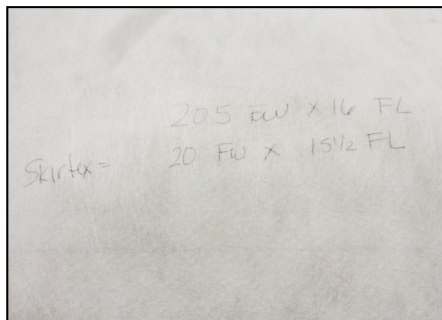 20.5 FW X 16 FL
Skirtex = 20 FW X 15 1/2 FL